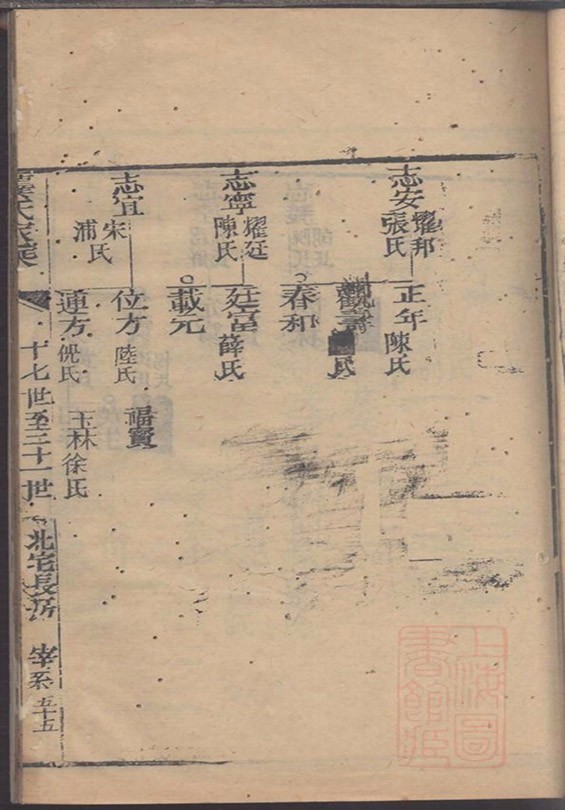 志安 耀邦
張氏
正年 陳氏
觀壽 氏
春和
志寧 耀廷
陳氏
廷富 薛氏
載元
志宜 宋
浦氏
位方 陸氏 福寶
連方 倪氏 玉林 徐氏
氏家乘
十七世至三十一世
北宅長房
宰系 五十五
上海圖
書館藏